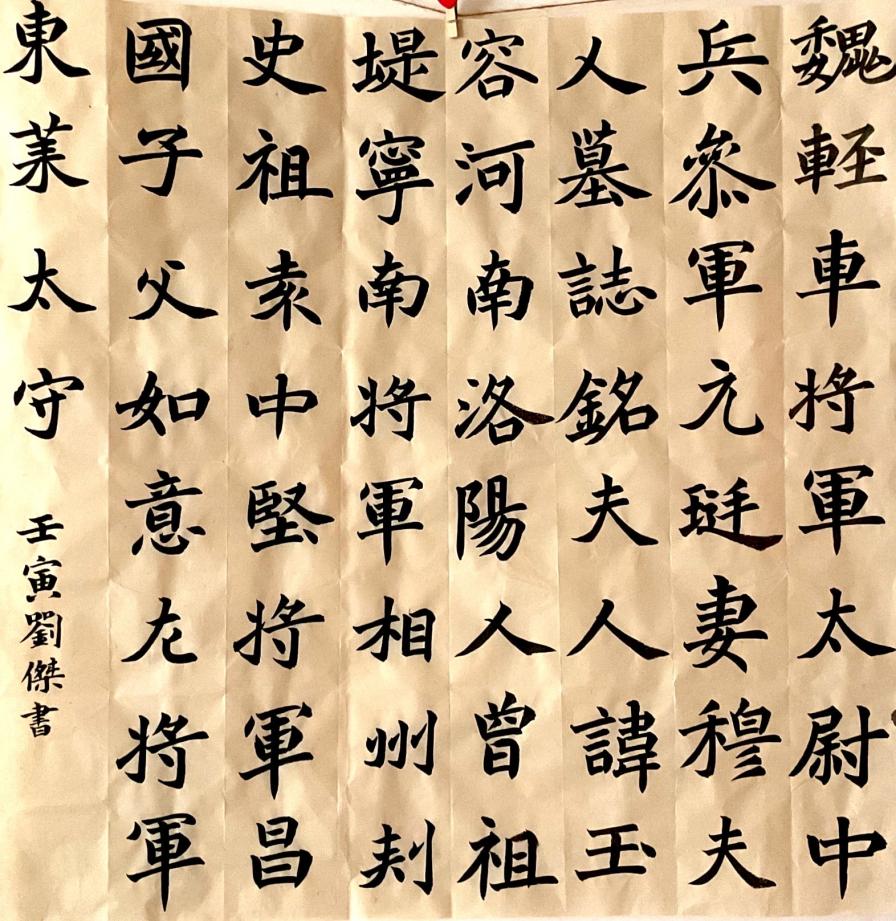 魏軽車将軍太尉中
兵叅軍元珽妻穆夫
人墓誌銘夫人諱玉
容河南洛陽人曾祖
堤寧南将軍相州刾
史祖袁中堅将軍昌
國子父如意左将軍
東莱太守
壬寅劉傑書